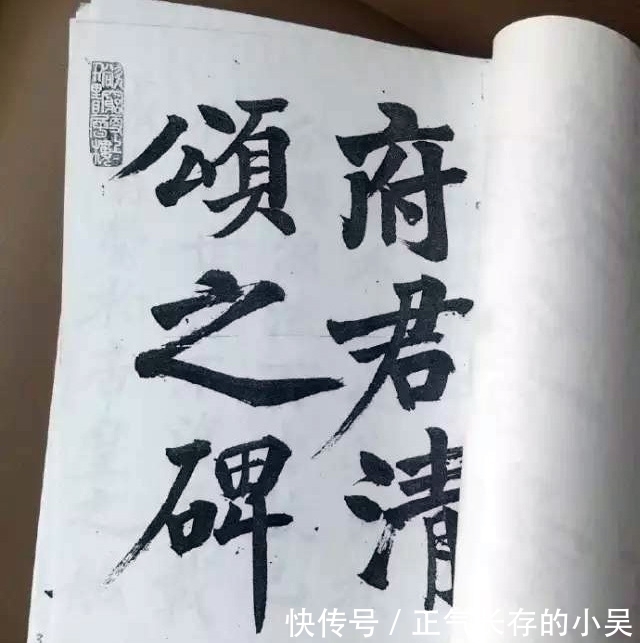 府君清
頌之碑
快传号 / 正气长存的小吴